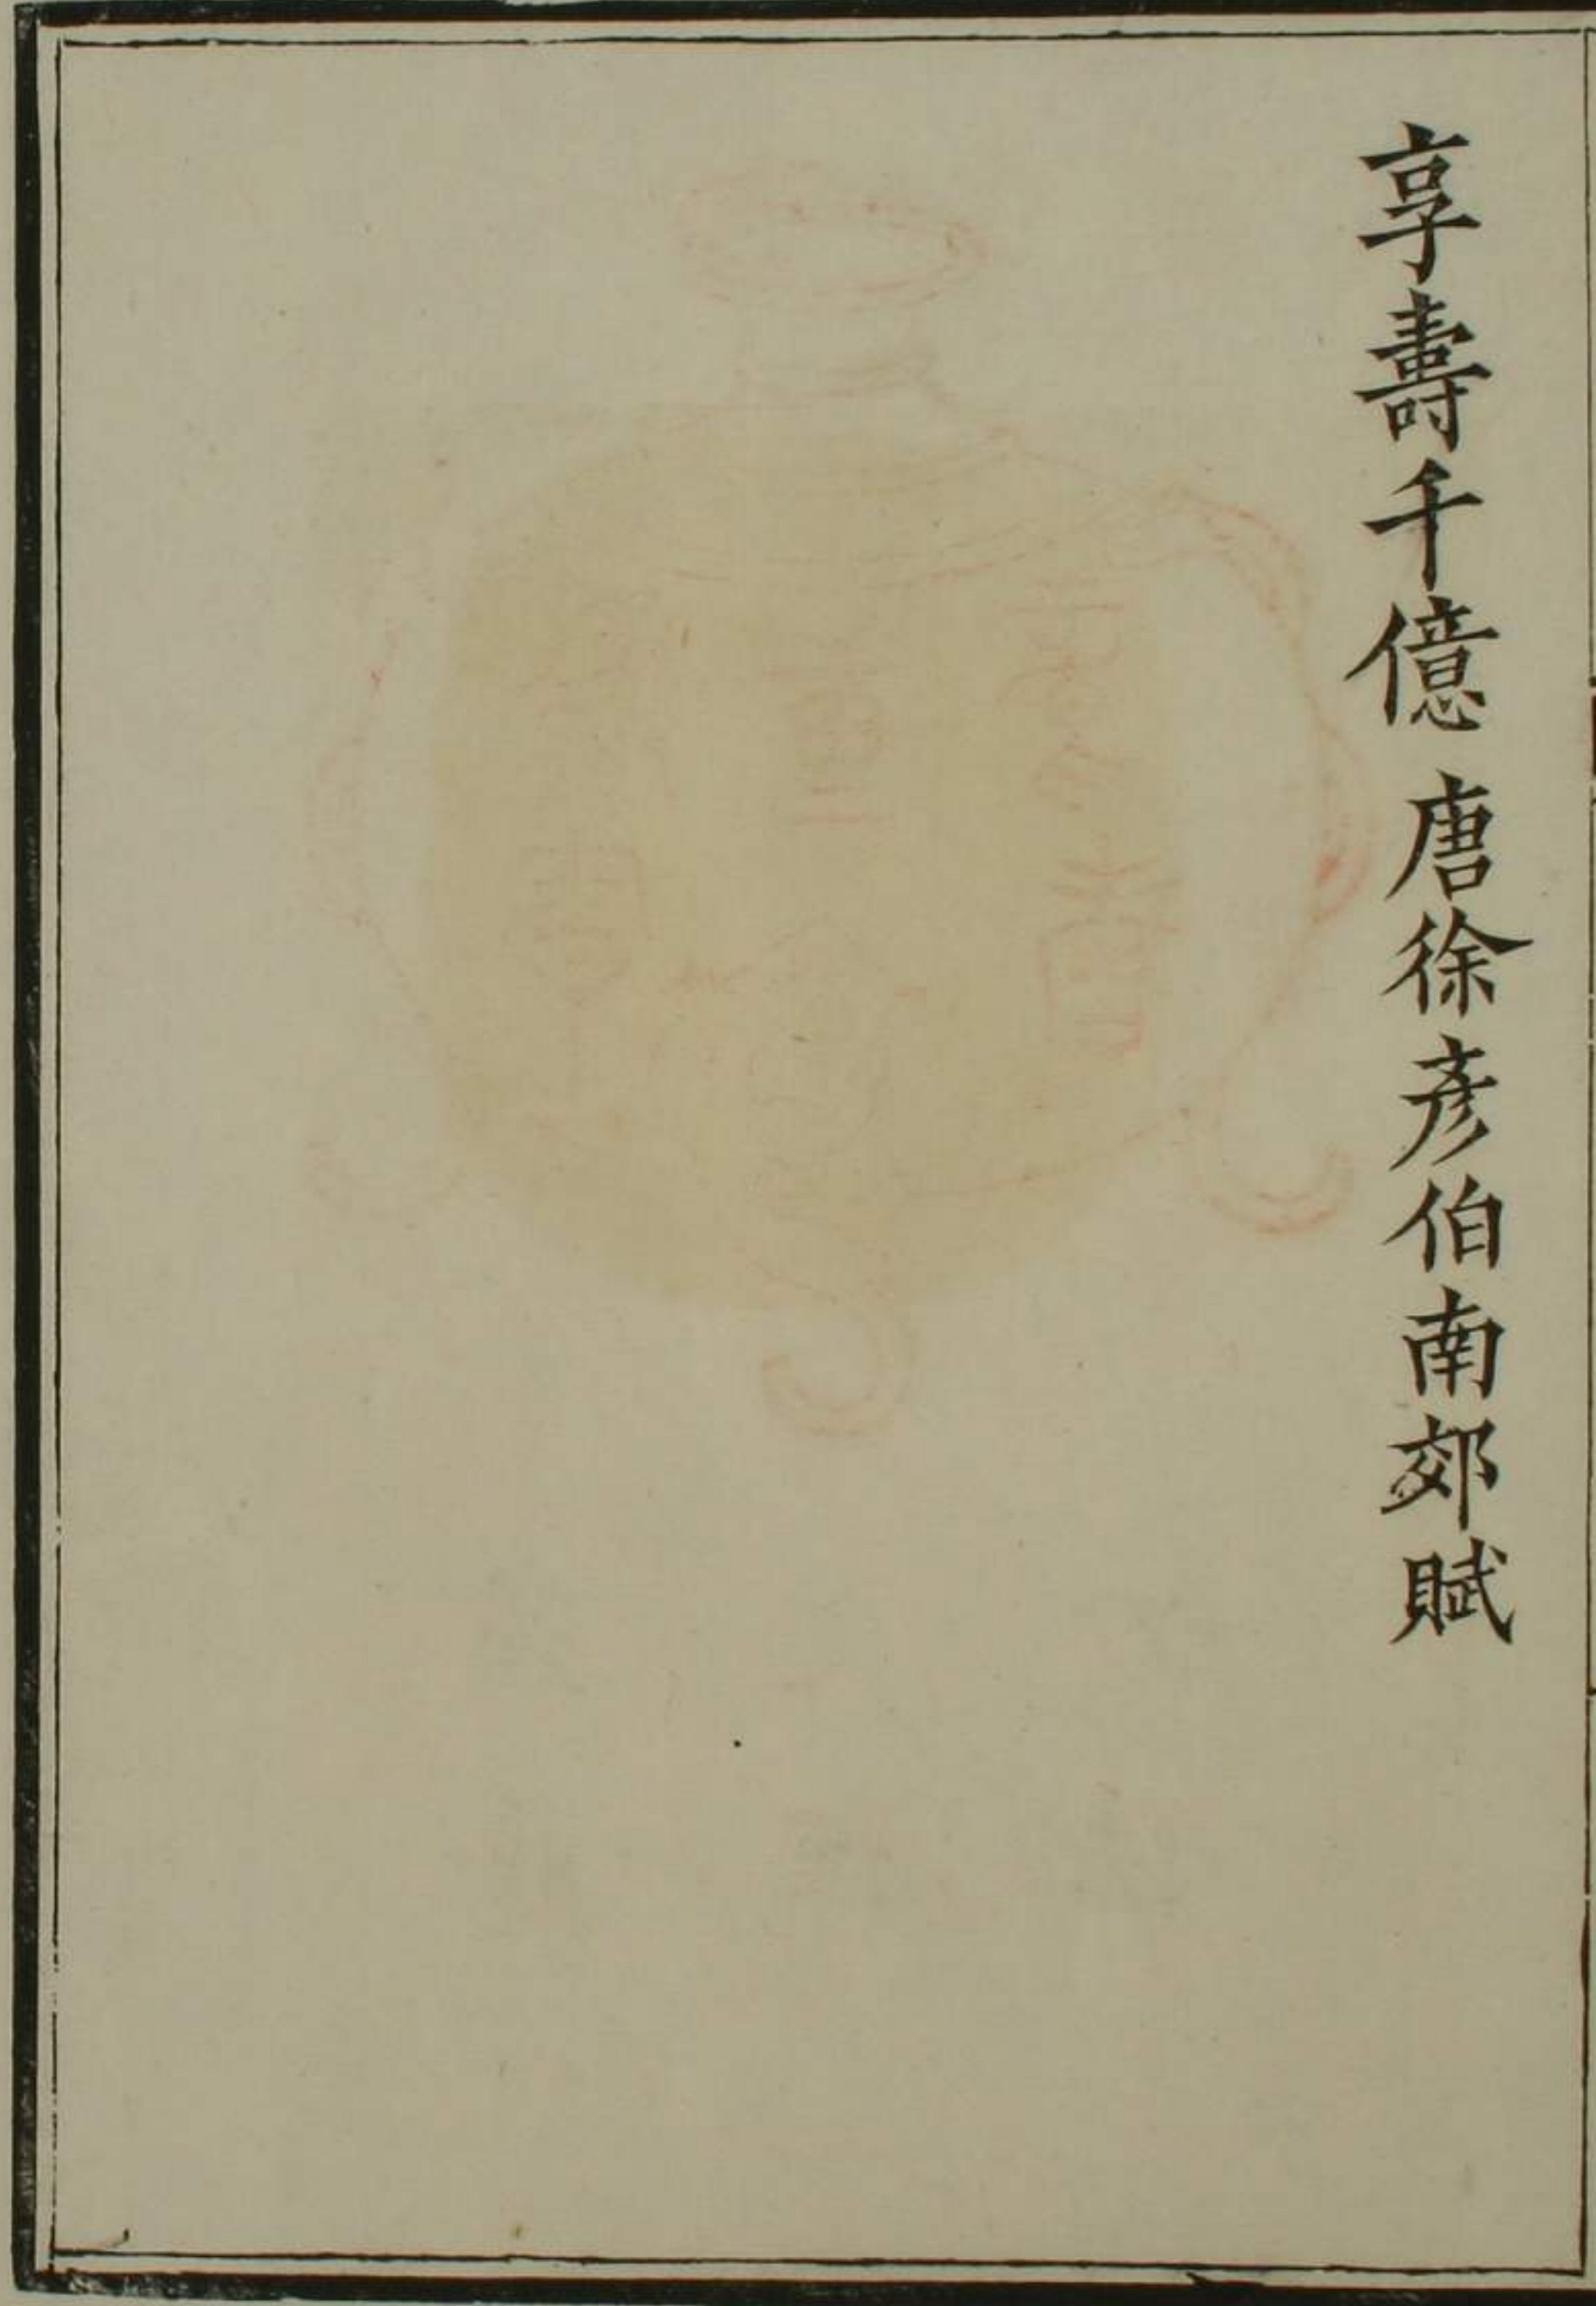 享壽千億 唐徐彥伯南郊賦